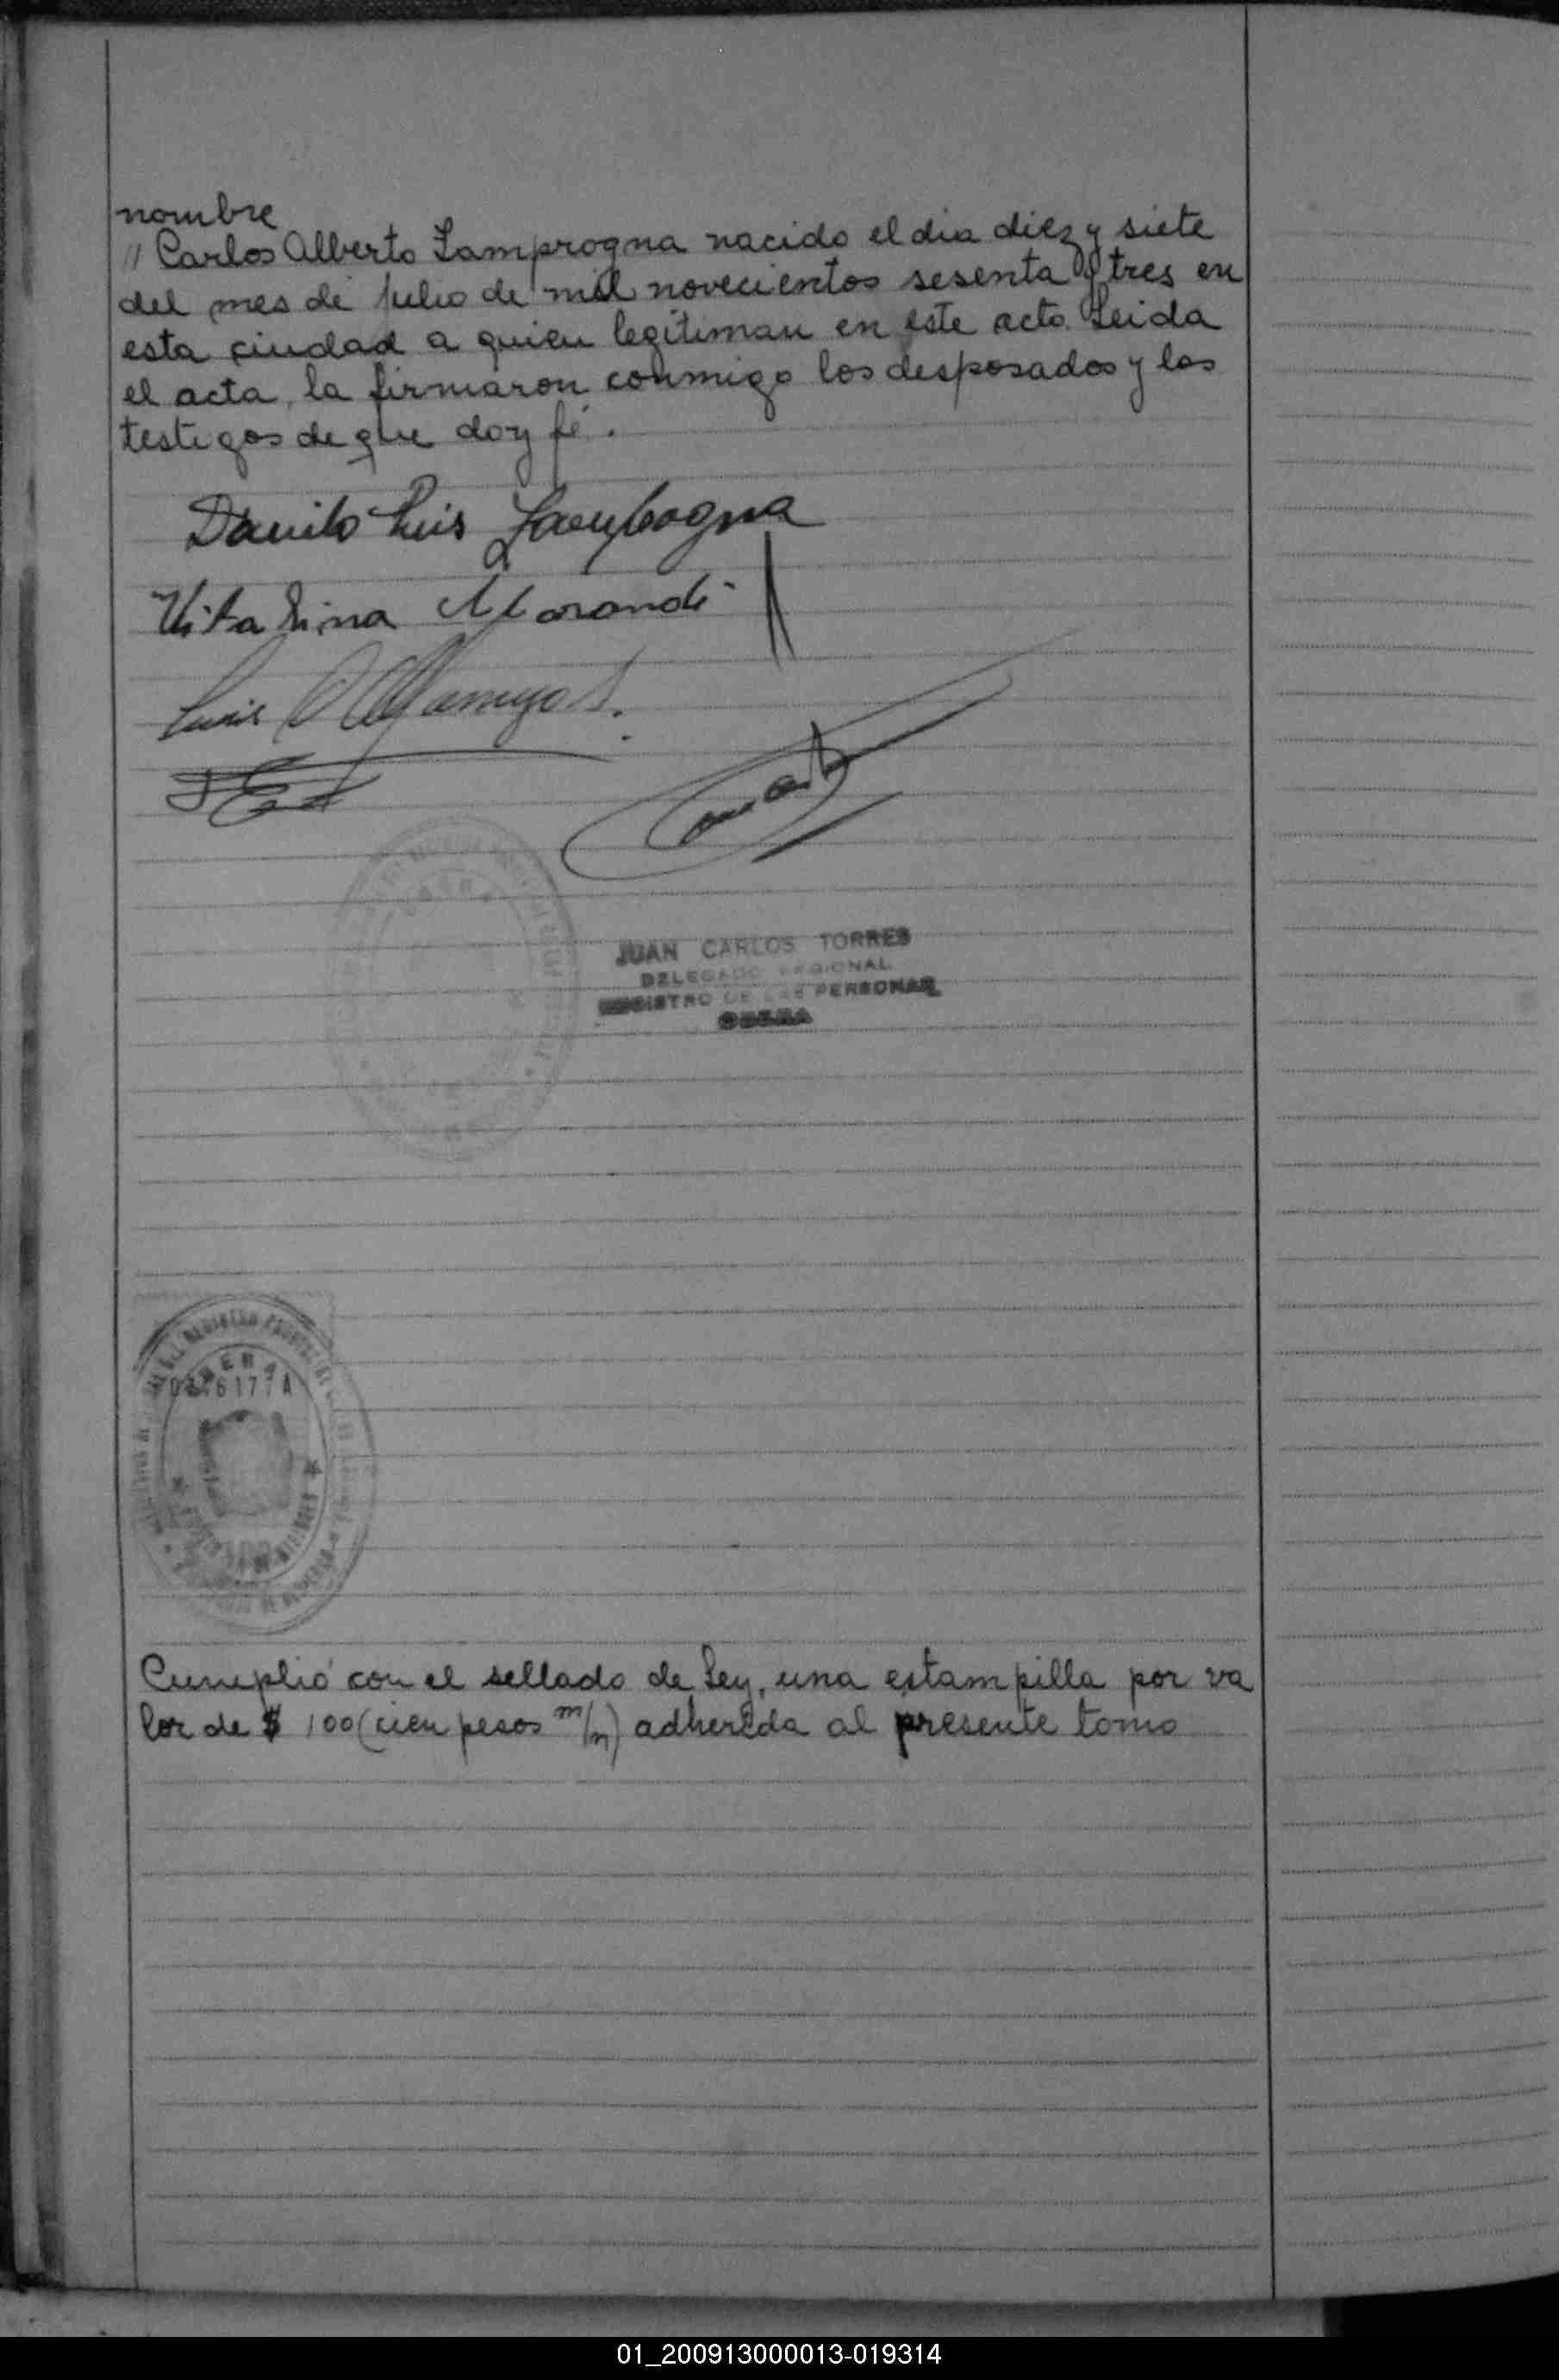 nombre
" Carlos Alberto Lamprogna nacido el dia diez y siete
del mes de julio de mil novecientos sesenta y tres en
esta ciudad a quien legitiman en este acto. Leida
el acta, la firmaron conmigo los desposados y los
testigos de que doy fé.
Danilo Luis Lamprogna
Vita Lina Morandi
Luis
JUAN CARLOS TORRES
DELEGADO REGIONAL
REGISTRO DE LAS PERSONAS
OBERA
REGISTRO PROVINCIAL
OBERA
Cumplió con el sellado de Ley, una estampilla por va
lor de $ 100 (cien pesos m/n) adherida al presente tomo
01_200913000013-019314